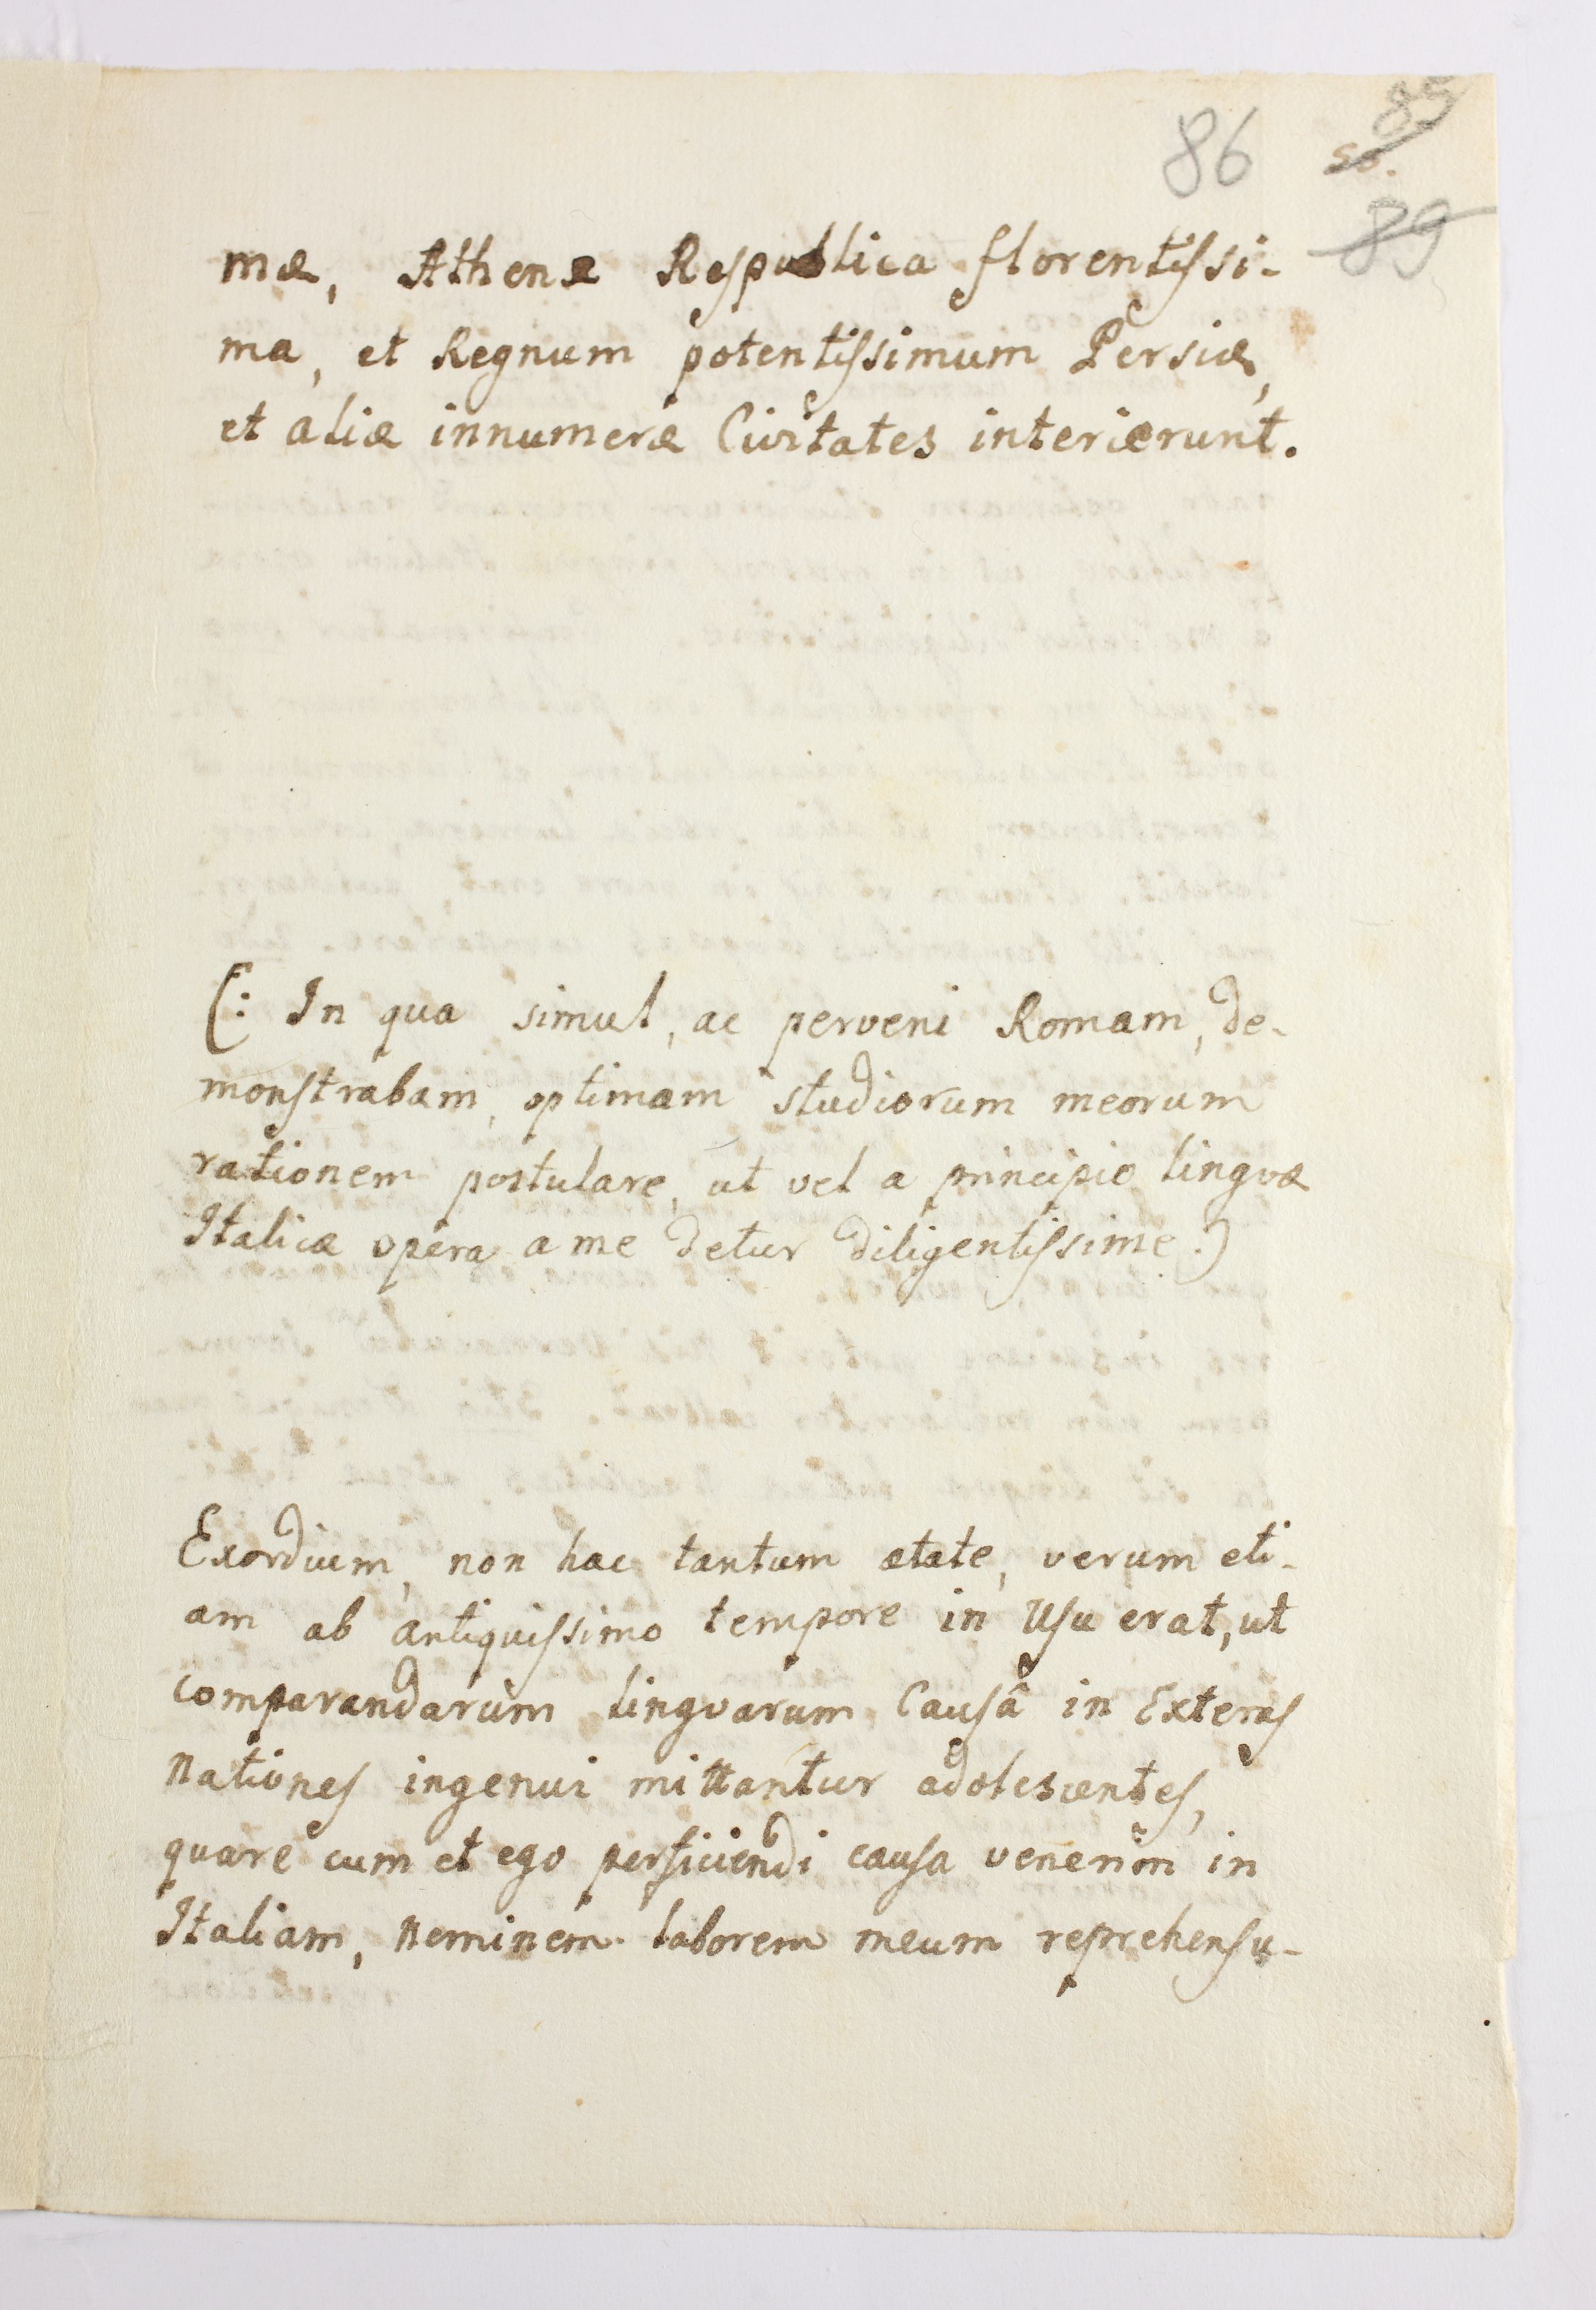 86
85
89
mæ, Athenæ Respublica florentissi-
ma, et Regnum potentissimum Persiæ,
et aliæ innumeræ Civitates interierunt.
(: In qua simul, ac perveni Romam, de-
monstrabam, optimam studiorum meorum
rationem postulare, ut vel a principio lingvæ
Italicæ opera a me detur diligentissime.)
Exordium, non hac tantum ætate, verum eti-
am ab antiquissimo tempore in Usu erat, ut
comparandarum lingvarum Causâ in Exteras
Nationes ingenui mittantur adolescentes,
quare cum et ego perficiendi causa venerim in
Italiam, Neminem laborem meum reprehensu-